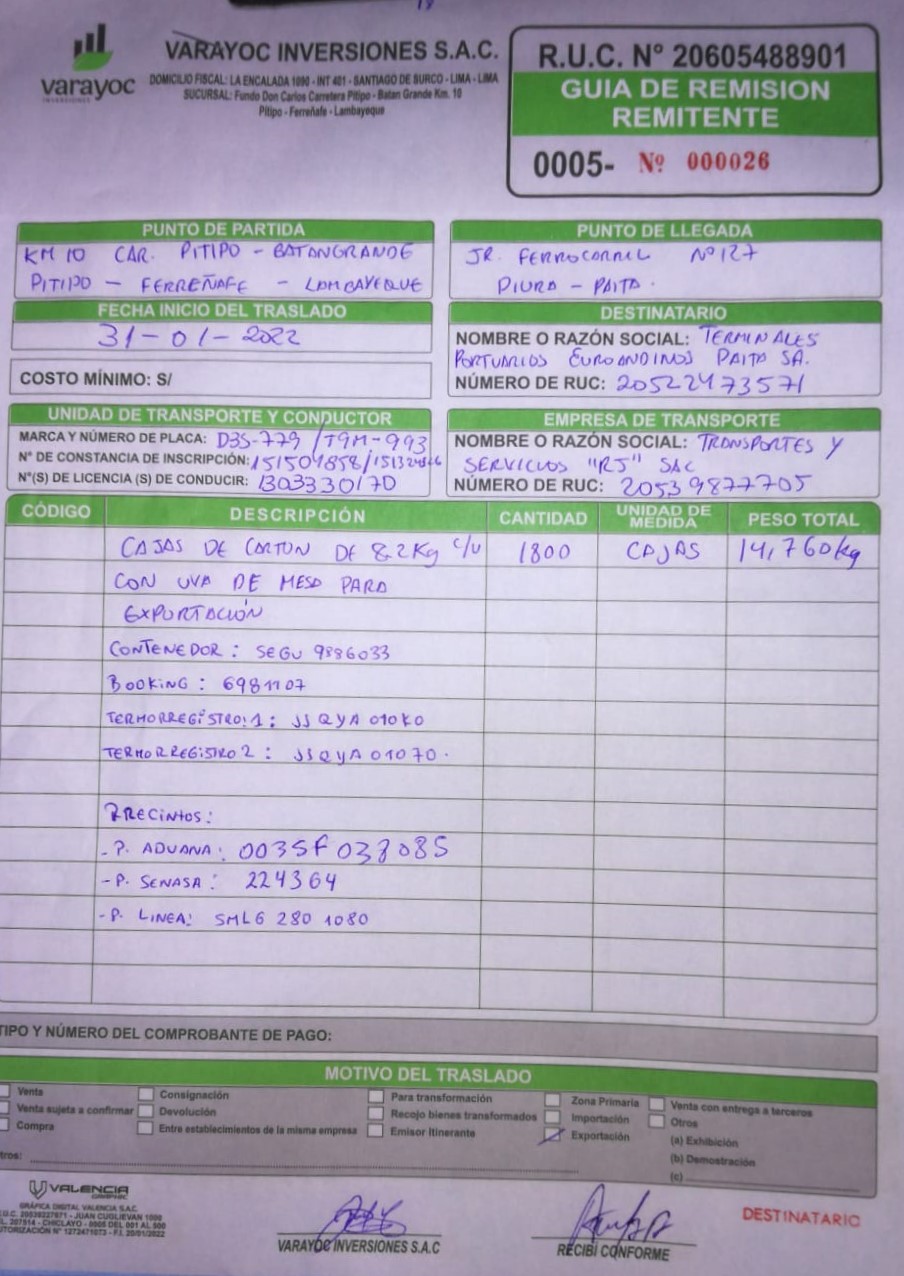 varayoc
INVERSIONES
VARAYOC INVERSIONES S.A.C.
DOMICILIO FISCAL: LA ENCALADA 1090 - INT 401 - SANTIAGO DE SURCO - LIMA - LIMA
SUCURSAL: Fundo Don Carlos Carretera Pitipo - Batan Grande Km. 10
Pitipo - Ferreñafe - Lambayeque
R.U.C. Nº 20605488901
GUIA DE REMISION
REMITENTE
0005- Nº 000026
PUNTO DE PARTIDA
KM 10 CAR. PITIPO - BATANGRANDE
PITIPO - FERREÑAFE - LAMBAYEQUE
PUNTO DE LLEGADA
JR. FERROCARRIL Nº 127
PIURA - PAITA.
FECHA INICIO DEL TRASLADO
31-01-2022
COSTO MÍNIMO: S/
DESTINATARIO
NOMBRE O RAZÓN SOCIAL: TERMINALES
PORTUARIOS EUROANDINOS PAITA SA.
NÚMERO DE RUC: 20522473571
UNIDAD DE TRANSPORTE Y CONDUCTOR
MARCA Y NÚMERO DE PLACA: D3S-779 / T9M-993
Nº DE CONSTANCIA DE INSCRIPCIÓN: 151501858/
Nº(S) DE LICENCIA (S) DE CONDUCIR: B03330170
EMPRESA DE TRANSPORTE
NOMBRE O RAZÓN SOCIAL: TRANSPORTES Y
SERVICIOS "RJ" SAC
NÚMERO DE RUC: 20539877705
CÓDIGO DESCRIPCIÓN CANTIDAD UNIDAD DE MEDIDA PESO TOTAL
CAJAS DE CARTON DE 8.2Kg c/u 1800 CAJAS 14,760kg
CON UVA DE MESA PARA
EXPORTACIÓN
CONTENEDOR: SEGU 9886033
BOOKING: 6981107
TERMORREGISTRO 1: JJQYA 010K0
TERMORREGISTRO 2: JJQYA 01070.
PRECINTOS:
- P. ADUANA: 003SF038085
- P. SENASA: 224364
- P. LINEA: SMLG 280 1080
TIPO Y NÚMERO DEL COMPROBANTE DE PAGO:
MOTIVO DEL TRASLADO
Venta Consignación Para transformación Zona Primaria Venta con entrega a terceros
Venta sujeta a confirmar Devolución Recojo bienes transformados Importación Otros
Compra Entre establecimientos de la misma empresa Emisor Itinerante Exportación (a) Exhibición
(b) Demostración
(c)
VALENCIA
GRAPHIC
GRÁFICA DIGITAL VALENCIA S.A.C.
JUAN CUGLIEVAN 1000
CHICLAYO - 0005 DEL 001 AL 500
F.I. 20/01/2022
VARAYOC INVERSIONES S.A.C
RECIBÍ CONFORME
DESTINATARIO